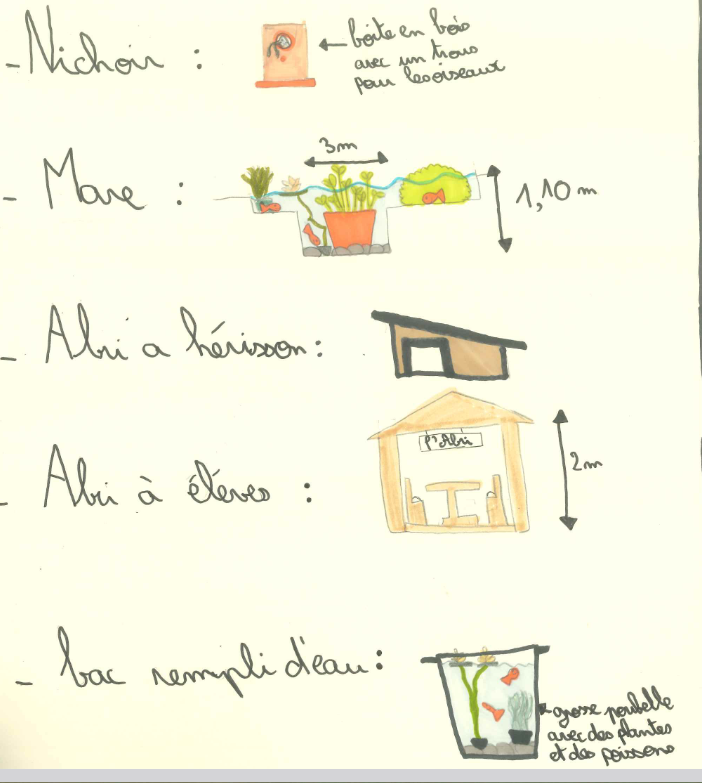 - Nichoir :
boite en bois
avec un trous
pour les oiseaux
- Mare :
3m
1,10 m
- Abri a hérisson :
- Abri à élèves :
l'Abri
2m
- bac rempli d'eau :
grosse poubelle
avec des plantes
et des poissons